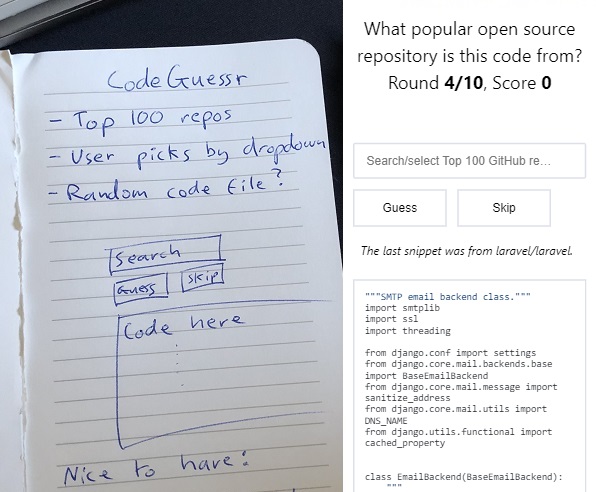 CodeGuessr
- Top 100 repos
- User picks by dropdown
- Random code file?
Search
Guess
Skip
Code here
Nice to have:
What popular open source
repository is this code from?
Round 4/10, Score 0
Search/select Top 100 GitHub re...
Guess
Skip
The last snippet was from laravel/laravel.
"""SMTP email backend class."""
import smtplib
import ssl
import threading
from django.conf import settings
from django.core.mail.backends.base
import BaseEmailBackend
from django.core.mail.message import
sanitize_address
from django.core.mail.utils import
DNS_NAME
from django.utils.functional import
cached_property
class EmailBackend(BaseEmailBackend):
"""